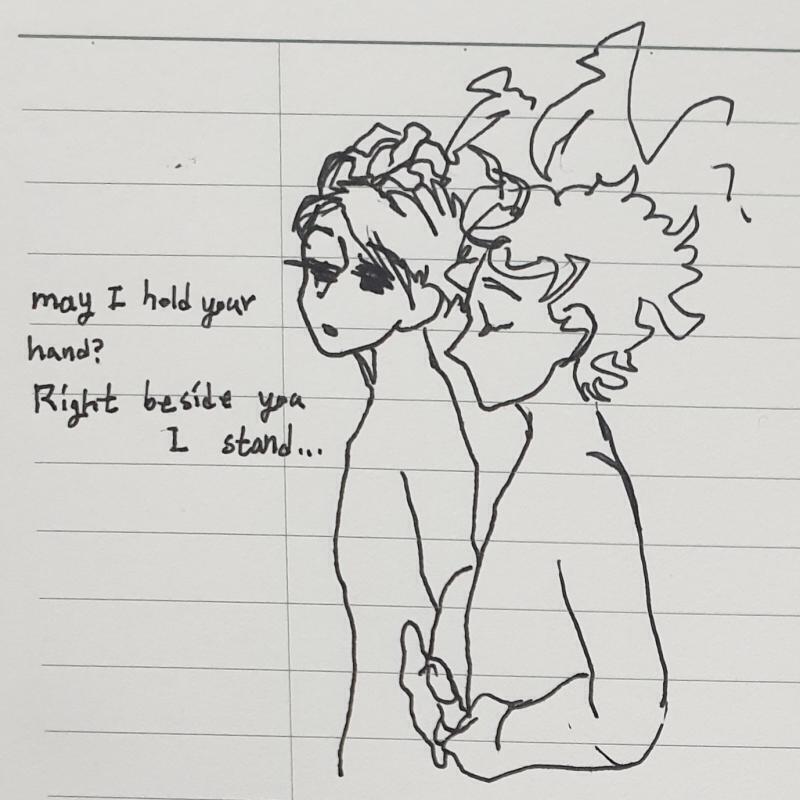 may I hold your
hand?
Right beside you
I stand...